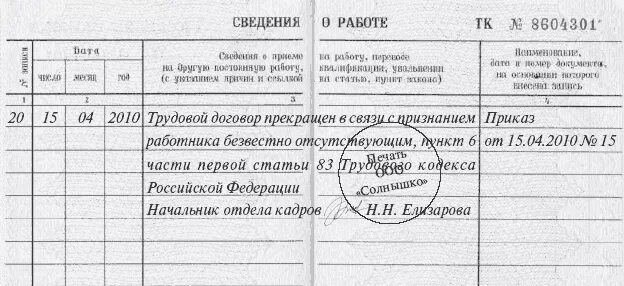 СВЕДЕНИЯ О РАБОТЕ ТК № 8604301
№ записи
Дата
Сведения о приеме на работу, переводе
на другую постоянную работу, квалификации, увольнении
(с указанием причин и ссылкой на статью, пункт закона)
Наименование,
дата и номер документа,
на основании которого
внесена запись
число месяц год
1 2 3 4
20 15 04 2010 Трудовой договор прекращен в связи с признанием Приказ
работника безвестно отсутствующим, пункт 6 от 15.04.2010 № 15
части первой статьи 83 Трудового кодекса
Российской Федерации
Начальник отдела кадров Н.Н. Елизарова
Печать
ООО
«Солнышко»